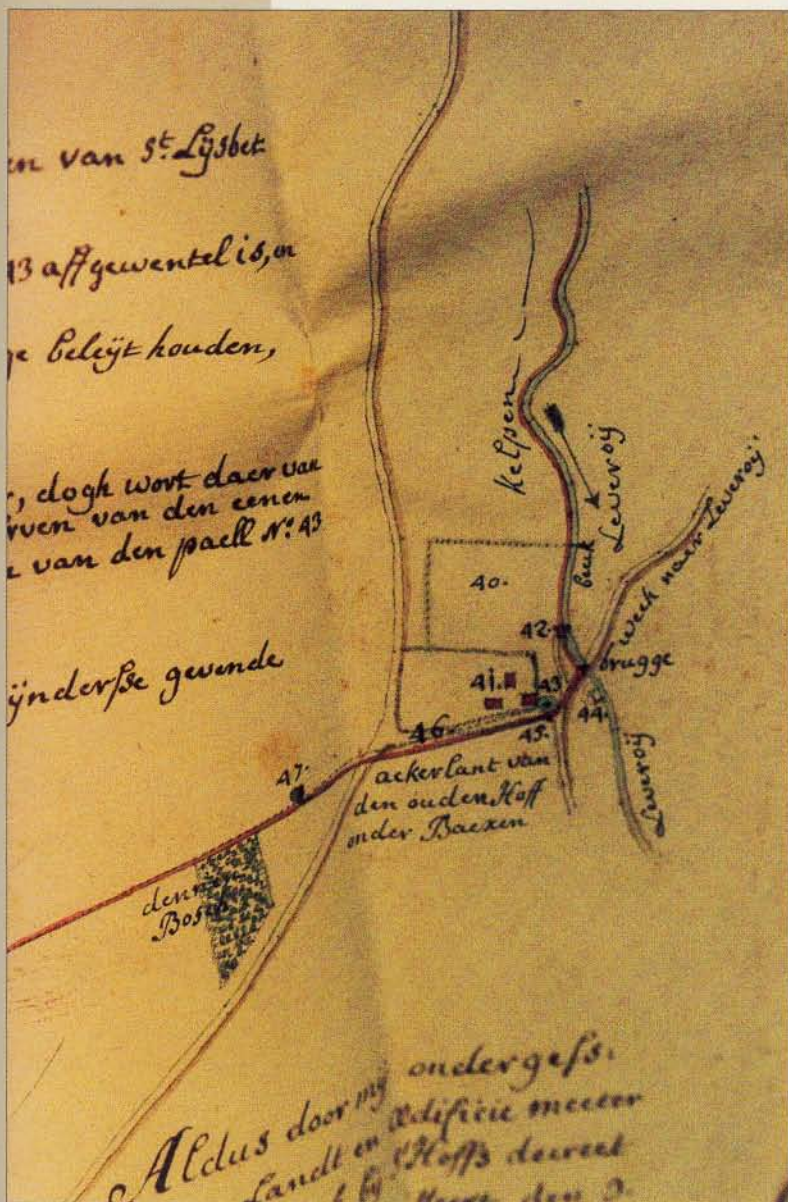 en van St. Lÿsbet
43 affgewentel is, en
ge beleÿt houden,
, dogh wort daer van
rven van den eenen
n van den paell No. 43
ÿnderse gevende
Kelpen
Leveroÿ
beek
wech naer Leveroÿ.
40.
42.
brugge
41.
43
44.
45.
46.
Leveroÿ
47.
ackerlant van
den ouden Hoff
onder Baexen
den
Bosch
Aldus door mÿ ondergess.
Landt en Ædificie meeter
by 't Hoffs decreet
den